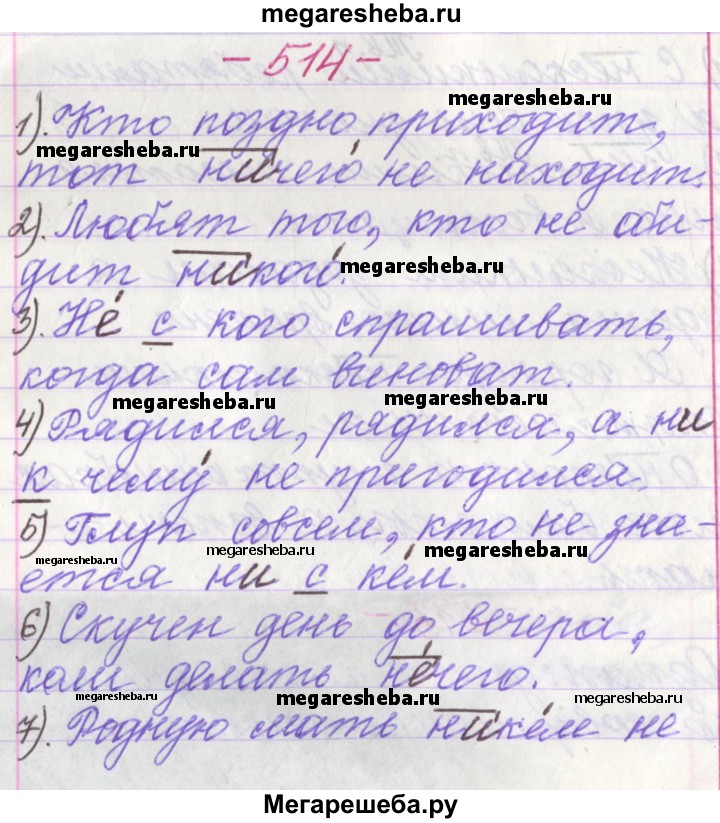 megaresheba.ru
- 514 -
megaresheba.ru
1). Кто поздно приходит,
megaresheba.ru
тот ничего не находит.
2). Любят того, кто не оби-
дит никого.
megaresheba.ru
3). Не с кого спрашивать,
когда сам виноват.
megaresheba.ru megaresheba.ru
4) Рядился, рядился, а ни
к чему не пригодился.
5) Глуп совсем, кто не зна-
megaresheba.ru megaresheba.ru megaresheba.ru
ется ни с кем.
6) Скучен день до вечера,
коли делать нечего.
megaresheba.ru megaresheba.ru megaresheba.ru
7). Родную мать никем не
Мегарешеба.ру